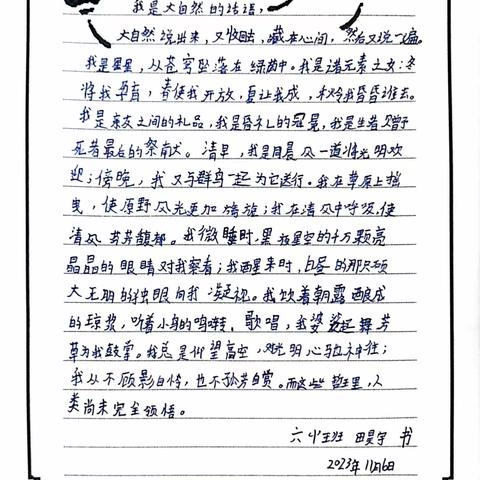 我是大自然的话语，
大自然说出来，又收回去，藏在心间，然后又说一遍。
我是星星，从苍穹坠落在绿茵中。我是诸元素之女：冬
将我孕育，春使我开放，夏让我成，秋令我昏昏睡去。
我是亲友之间的礼品，我是婚礼的冠冕，我是生者赠予
死者最后的祭献。清早，我同晨风一道将光明欢
迎；傍晚，我又与群鸟一起为它送行。我在草原上摇
曳，使原野风光更加旖旎；我在清风中呼吸，使
清风芬芳馥郁。我微睡时，黑夜星空的千万颗亮
晶晶的眼睛对我察看；我醒来时，白昼的那只硕
大无朋的独眼向我凝视。我饮着朝露酿成
的琼浆，听着小鸟的鸣啭、歌唱，我婆娑起舞，芳
草为我鼓掌。我总是仰望高空，对光明心驰神往；
我从不顾影自怜，也不孤芳自赏。而这些哲理，人
类尚未完全领悟。
六班 田昊宇 书
2023年11月6日